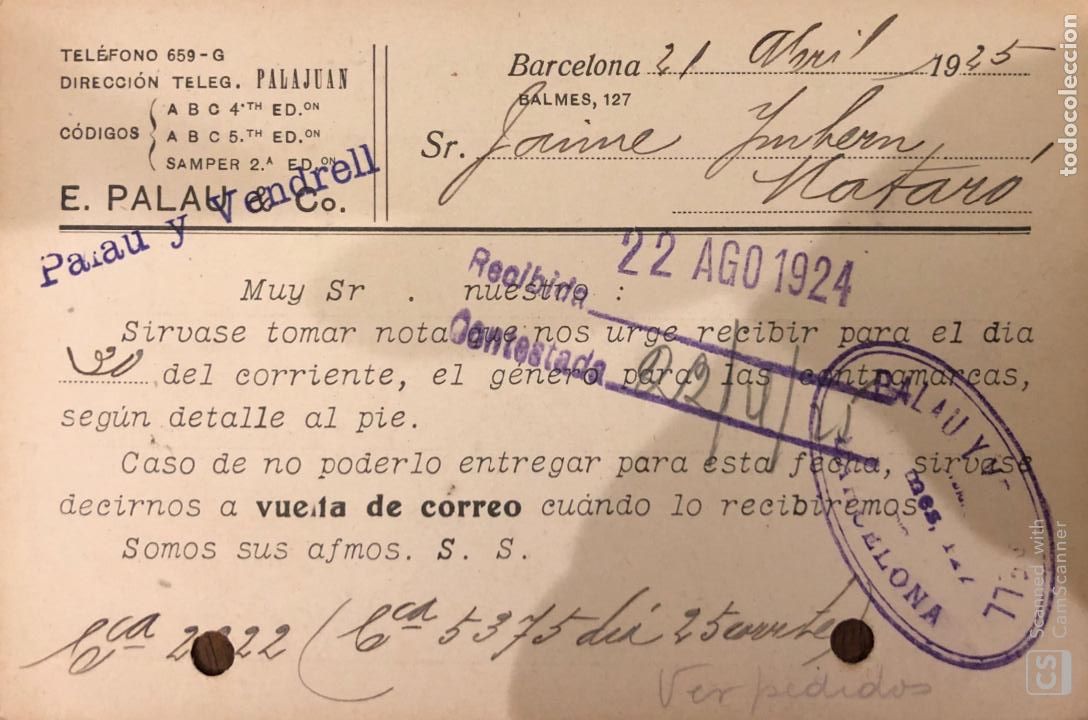 TELÉFONO 659-G
DIRECCIÓN TELEG. PALAJUAN
CÓDIGOS
A B C 4.TH ED.ON
A B C 5.TH ED.ON
SAMPER 2.A ED.ON
E. PALAU & Co.
Palau y Vendrell
Barcelona 21 Abril 1925
BALMES, 127
Sr. Jaime Imbern,
Mataró
22 AGO 1924
Recibida
Contestada 22/4/
Muy Sr. nuestro:
Sirvase tomar nota que nos urge recibir para el dia
30 del corriente, el género para las contramarcas,
según detalle al pie.
Caso de no poderlo entregar para esta fecha, sirvase
decirnos a vuelta de correo cuándo lo recibiremos.
Somos sus afmos. S. S.
PALAU Y
BARCELONA
Cca 2 22 (Cca 5375 dia 25 corrte)
Ver pedidos
todocoleccion
CS Scanned with
CamScanner